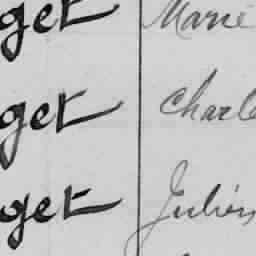 get Marie
get Charle
get Julien